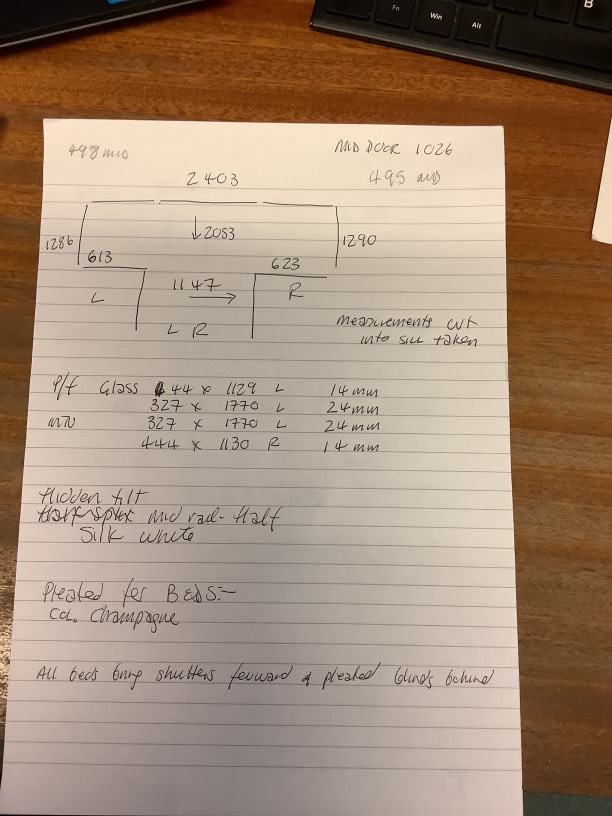 Fn
Win
Alt
B
498 MID
MID DOOR 1026
495 MID
2403
↓2053
1286
1290
613
623
1147
→
L
R
L R
Measurements cut
into sill taken
P/f Glass 444 x 1129 L 14mm
327 x 1770 L 24mm
327 x 1770 L 24mm
444 x 1130 R 14mm
Hidden tilt
Mid rail - Half
Silk white
Pleated for Beds:-
Col. Champagne
All beds bring shutters forward & pleated blinds behind